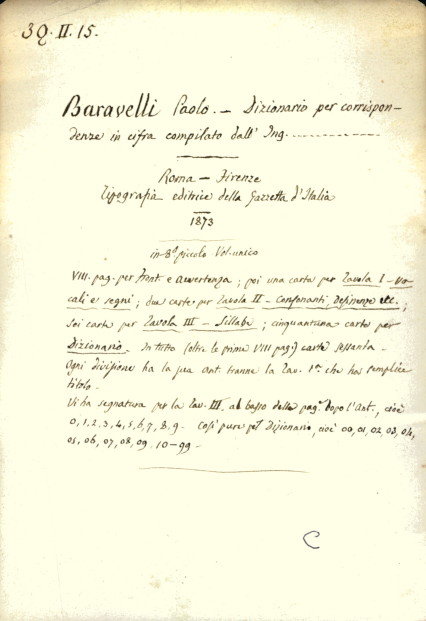 39. II. 15.
Baravelli Paolo. — Dizionario per corrispon-
denze in cifra compilato dall' Ing. ---------
Roma — Firenze
Tipografia editrice della Gazzetta d'Italia
1873
in-8º piccolo Vol. unico
VIII. pag. per Front. e avvertenza; poi una carta per Tavola I - Vo-
cali e segni; due carte per Tavola II - Consonanti, Desinenze etc.;
Sei carte per Tavola III - Sillabe; cinquantuna carte per
Dizionario. In tutto (oltre le prime VIII pag.) carte sessanta -
Ogni divisione ha la sua ant. tranne la Tav. 1ª che ha semplice
titolo.
Vi ha segnatura per la Tav. III, al basso delle pag. dopo l'Ant., cioè
0, 1, 2, 3, 4, 5, 6, 7, 8, 9. Così pure pel Dizionario, cioè 00, 01, 02, 03, 04,
05, 06, 07, 08, 09. 10-99 -
C